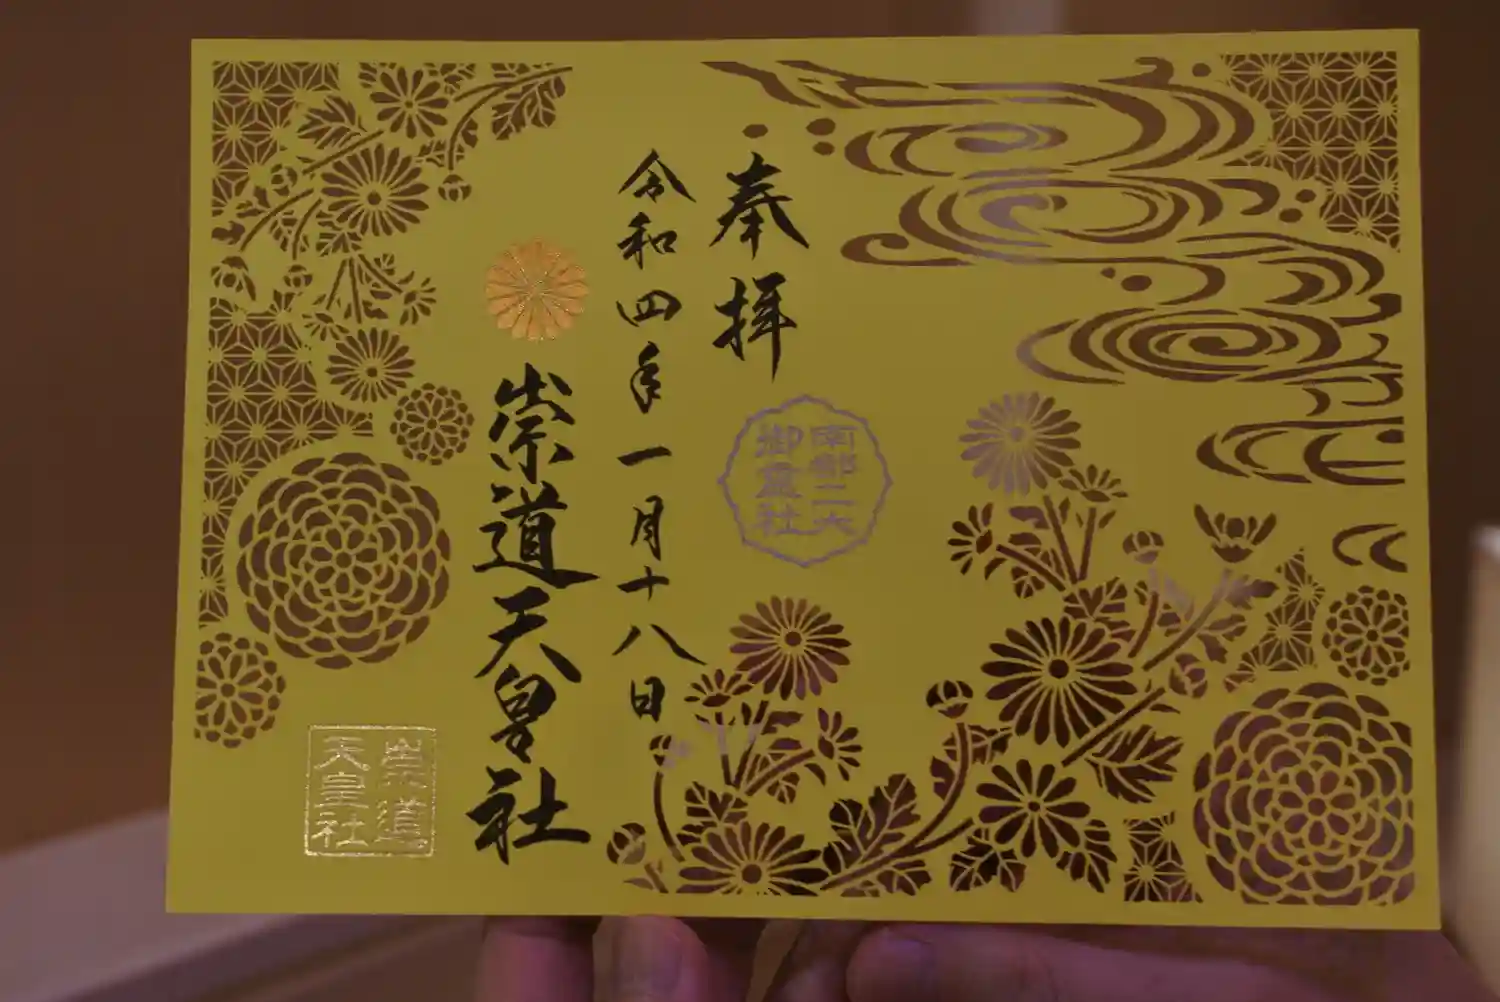 奉拝
南都二大
御霊社
令和四年一月十八日
崇道天皇社
崇道
天皇社